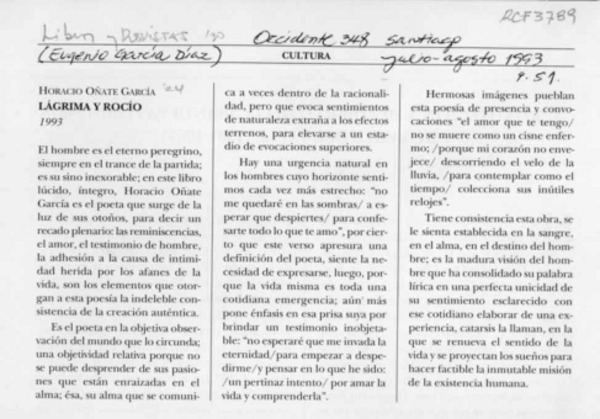 RCF3789
Libros y Revistas '90
Occidente 348 Santiago
(Eugenio García Díaz)
CULTURA
julio-agosto 1993
p. 51.
HORACIO OÑATE GARCÍA
LÁGRIMA Y ROCÍO
1993
El hombre es el eterno peregrino,
siempre en el trance de la partida;
es su sino inexorable; en este libro
lúcido, íntegro, Horacio Oñate
García es el poeta que surge de la
luz de sus otoños, para decir un
recado plenario: las reminiscencias,
el amor, el testimonio de hombre,
la adhesión a la causa de intimi-
dad herida por los afanes de la
vida, son los elementos que otor-
gan a esta poesía la indeleble con-
sistencia de la creación auténtica.
Es el poeta en la objetiva obser-
vación del mundo que lo circunda;
una objetividad relativa porque no
se puede desprender de sus pasio-
nes que están enraizadas en el
alma; ésa, su alma que se comuni-
ca a veces dentro de la racionali-
dad, pero que evoca sentimientos
de naturaleza extraña a los efectos
terrenos, para elevarse a un esta-
dio de evocaciones superiores.
Hay una urgencia natural en
los hombres cuyo horizonte senti-
mos cada vez más estrecho: "no
me quedaré en las sombras/ a es-
perar que despiertes/ para confe-
sarte todo lo que te amo", por cier-
to que este verso apresura una
definición del poeta, siente la ne-
cesidad de expresarse, luego, por-
que la vida misma es toda una
cotidiana emergencia; aún más
pone énfasis en esa prisa suya por
brindar un testimonio inobjeta-
ble: "no esperaré que me invada la
eternidad/para empezar a despe-
dirme/y pensar en lo que he sido:
/un pertinaz intento/ por amar la
vida y comprenderla".
Hermosas imágenes pueblan
esta poesía de presencia y convo-
caciones "el amor que te tengo/
no se muere como un cisne enfer-
mo; /porque mi corazón no enve-
jece/ descorriendo el velo de la
lluvia, /para contemplar como el
tiempo/ colecciona sus inútiles
relojes".
Tiene consistencia esta obra, se
le sienta establecida en la sangre,
en el alma, en el destino del hom-
bre; es la madura visión del hom-
bre que ha consolidado su palabra
lírica en una perfecta unicidad de
su sentimiento esclarecido con
ese cotidiano elaborar de una ex-
periencia, catarsis la llaman, en la
que se renueva el sentido de la
vida y se proyectan los sueños para
hacer factible la inmutable misión
de la existencia humana.